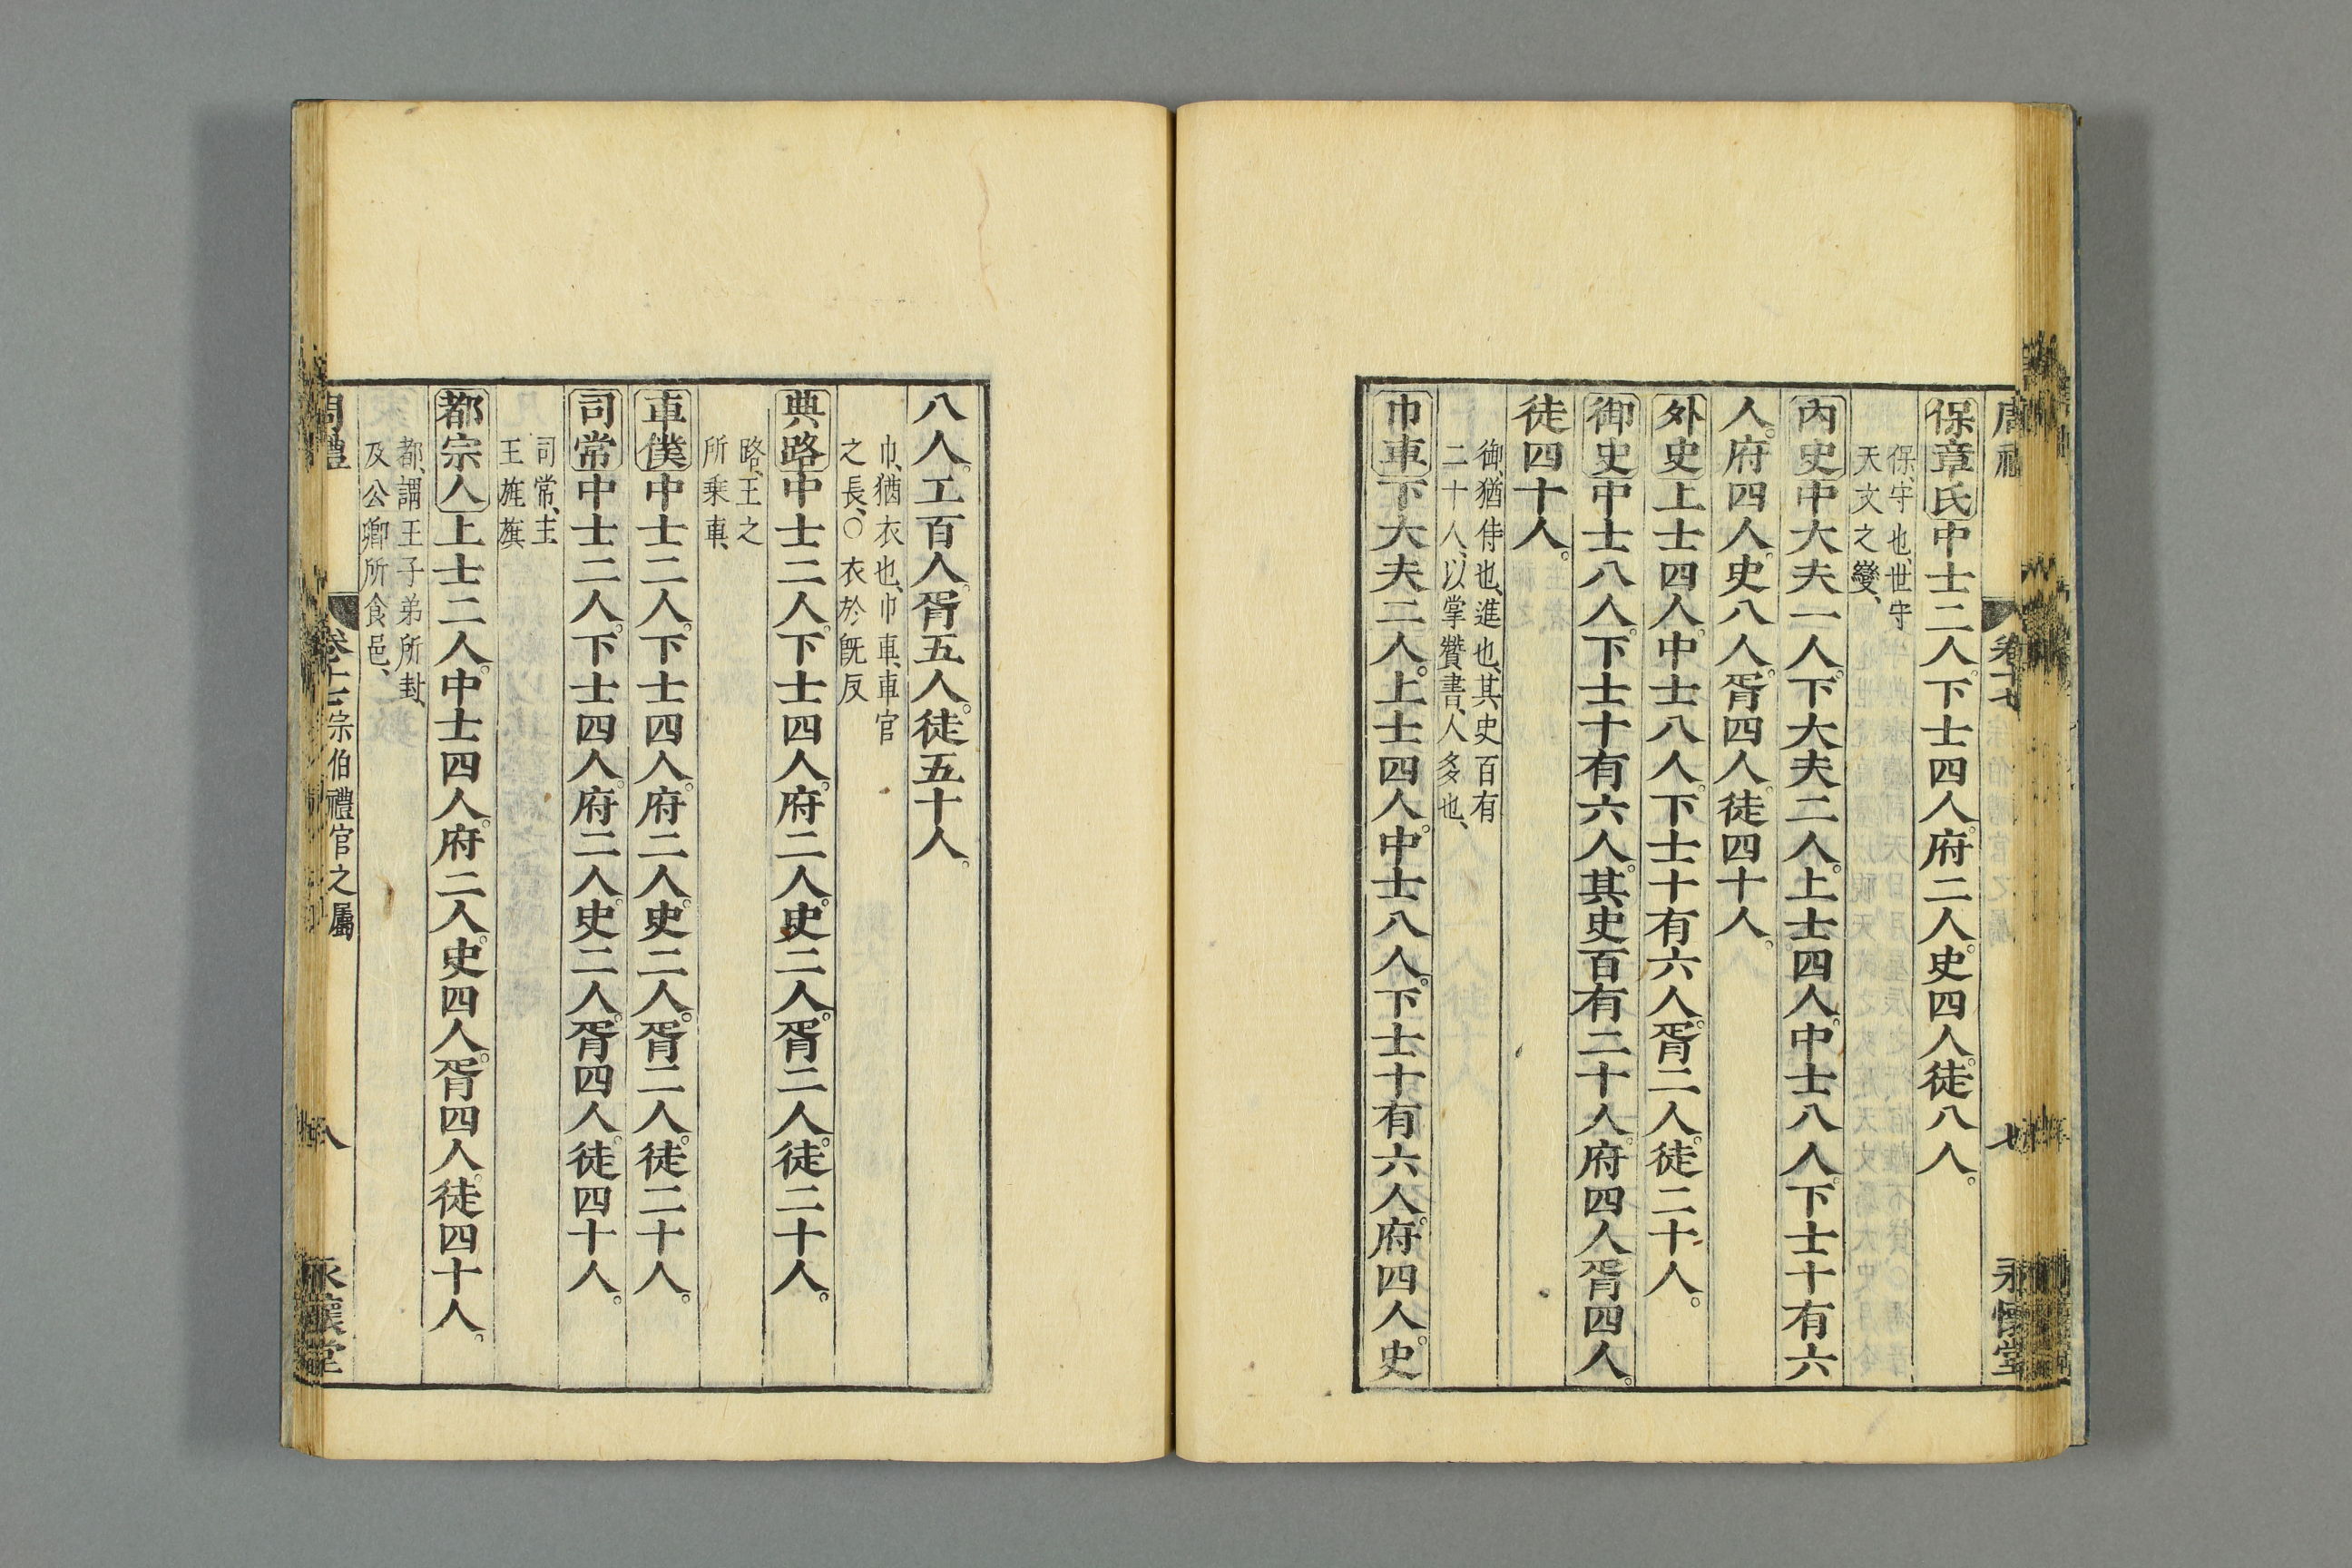 保章氏中士二人。下士四人。府二人。史四人。徒八人。
保、守也、世守
天文之變、
內史中大夫一人。下大夫二人。上士四人。中士八人。下士十有六
人。府四人。史八人。胥四人。徒四十人。
外史上士四人。中士八人。下士十有六人。胥二人。徒二十人。
御史中士八人。下士十有六人。其史百有二十人。府四人。胥四人。
徒四十人。
御、猶侍也、進也、其史百有
二十人、以掌贊書、人多也、
巾車下大夫二人。上士四人。中士八人。下士十有六人。府四人。史
八人。工百人。胥五人。徒五十人。
巾、猶衣也、巾車、車官
之長、○衣於旣反
典路中士二人。下士四人。府二人。史二人。胥二人。徒二十人。
路、王之
所乘車、
車僕中士二人。下士四人。府二人。史二人。胥二人。徒二十人。
司常中士二人。下士四人。府二人。史二人。胥四人。徒四十人。
司常、主
王旌旗
都宗人上士二人。中士四人。府二人。史四人。胥四人。徒四十人。
都、謂王子弟所封、
及公卿所食邑、
周禮 卷十七 宗伯禮官之屬 八 永懷堂